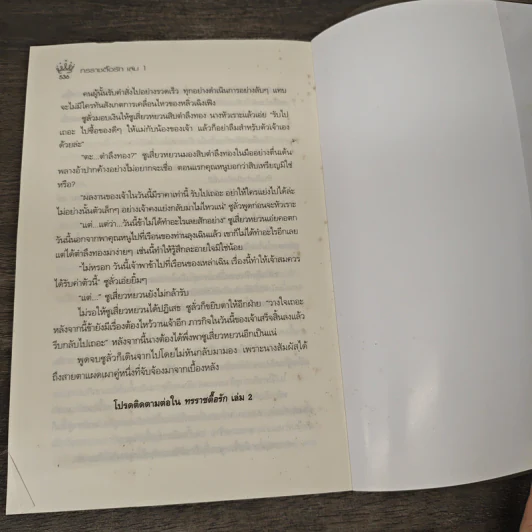 536
ทรราชตื๊อรัก เล่ม 1
คนผู้นั้นรับคำสั่งไปอย่างรวดเร็ว ทุกอย่างดำเนินการอย่างลับๆ แทบ
จะไม่มีใครทันสังเกตการเคลื่อนไหวของหลิ่วเฉิงเฟิง
ซูลั่วมอบเงินให้ซูเสี่ยวหยวนสิบตำลึงทอง นางหัวเราะแล้วเอ่ย “รับไป
เถอะ ไปซื้อของดีๆ ให้แม่กับน้องของเจ้า แล้วก็อย่าลืมสำหรับตัวเจ้าเอง
ด้วยล่ะ”
“ตะ...ตำลึงทอง?” ซูเสี่ยวหยวนมองสิบตำลึงทองในมืออย่างตื่นเต้น
พลางอ้าปากค้างอย่างไม่อยากจะเชื่อ ตอนแรกคุณหนูบอกว่าสิบเหรียญมิใช่
หรือ?
“ผลงานของเจ้าในวันนี้มีราคาเท่านี้ รับไปเถอะ อย่าให้ใครแย่งไปได้ล่ะ
ไม่อย่างนั้นตัวเล็กๆ อย่างเจ้าคงแย่งกลับมาไม่ไหวแน่” ซูลั่วพูดก่อนจะหัวเราะ
“แต่... แต่ว่า...วันนี้ข้าไม่ได้ทำอะไรเลยสักอย่าง” ซูเสี่ยวหยวนเอ่ยคอตก
วันนี้นอกจากพาคุณหนูไปที่เรือนของท่านลุงเฉินแล้ว เขาก็ไม่ได้ทำอะไรอีกเลย
แต่ได้ตำลึงทองมาง่ายๆ เช่นนี้ทำให้รู้สึกละอายใจมิใช่น้อย
“ไม่หรอก วันนี้เจ้าพาข้าไปที่เรือนของเหล่าเฉิน เรื่องนี้ทำให้เจ้าสมควร
ได้รับค่าตัวนี้” ซูลั่วเอ่ยยิ้มๆ
“แต่...” ซูเสี่ยวหยวนยังไม่กล้ารับ
ไม่รอให้ซูเสี่ยวหยวนได้ปฏิเสธ ซูลั่วก็ขยิบตาให้อีกฝ่าย “วางใจเถอะ
หลังจากนี้ข้ายังมีเรื่องต้องไหว้วานเจ้าอีก ภารกิจในวันนี้ของเจ้าเสร็จสิ้นลงแล้ว
รีบกลับไปเถอะ” หลังจากนี้นางต้องได้พึ่งพาซูเสี่ยวหยวนอีกเป็นแน่
พูดจบซูลั่วก็เดินจากไปโดยไม่หันกลับมามอง เพราะนางสัมผัสได้
ถึงสายตาแผดเผาคู่หนึ่งที่จับจ้องมาจากเบื้องหลัง
โปรดติดตามต่อใน ทรราชตื๊อรัก เล่ม 2